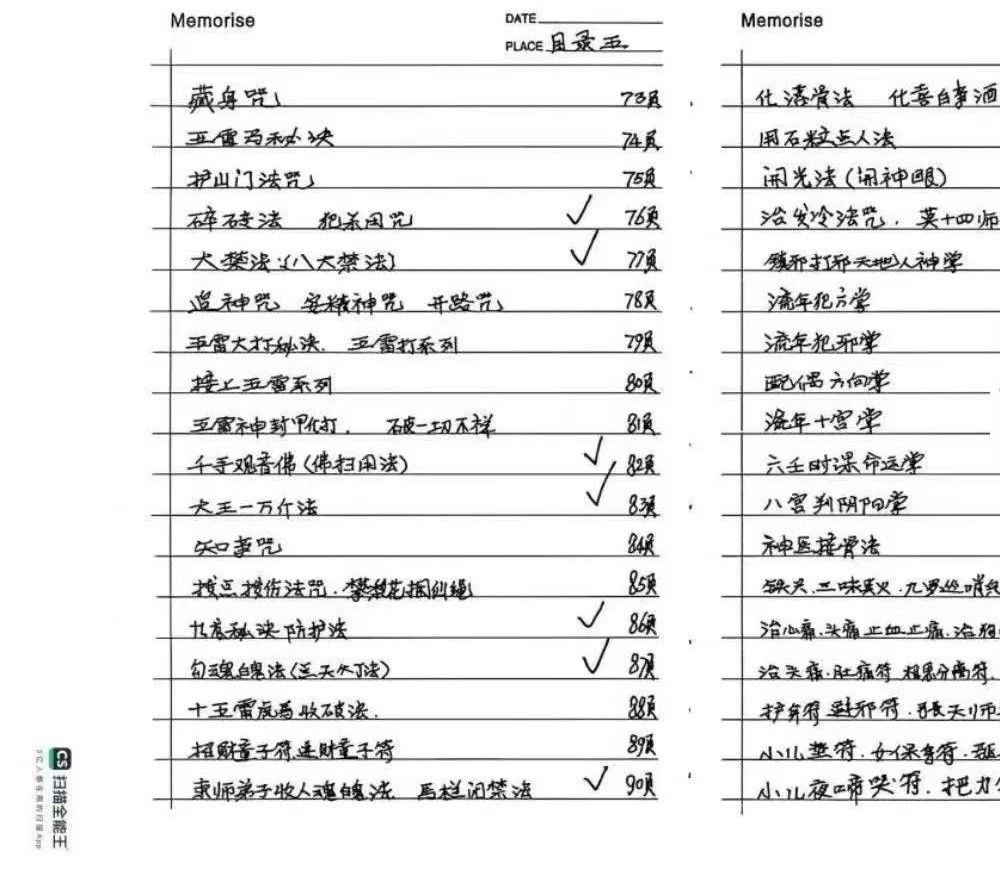 Memorise
DATE
PLACE 目录五
藏身咒 73页
五雷马秘决 74页
护山门法咒 75页
碎碗法 犯杀用咒 76页
大禁法(八大禁法) 77页
追神咒 安精神咒 开路咒 78页
五雷大打秘决. 五雷打系列 79页
接上五雷系列 80页
五雷神封甲化打. 破一切不祥 81页
千手观音佛(佛扫用法) 82页
大王一万斤法 83页
知事咒 84页
接伤法咒. 捆仙绳 85页
秘决防护法 86页
勾魂魄法 87页
十五雷 收破法. 88页
招财童子符.送财童子符 89页
弟子收人魂魄法 禁法 90页
Memorise
骨法 化喜白事酒
用石粒点人法
开光法(开神眼)
治发冷法咒. 莫十四师
镇邪打邪天地人神掌
流年犯方掌
流年犯邪掌
配偶方向掌
流年十宫掌
六壬时课命运掌
八宫判阴阳掌
神医接骨法
铁头.三味真火.九
治心痛.头痛止血止痛.治
治头痛.肚痛符 相思分离符.
护身符 避邪符.张天师
小儿 符.女保身符.
小儿夜啼哭符.
CS 扫描全能王
3亿人都在用的扫描App